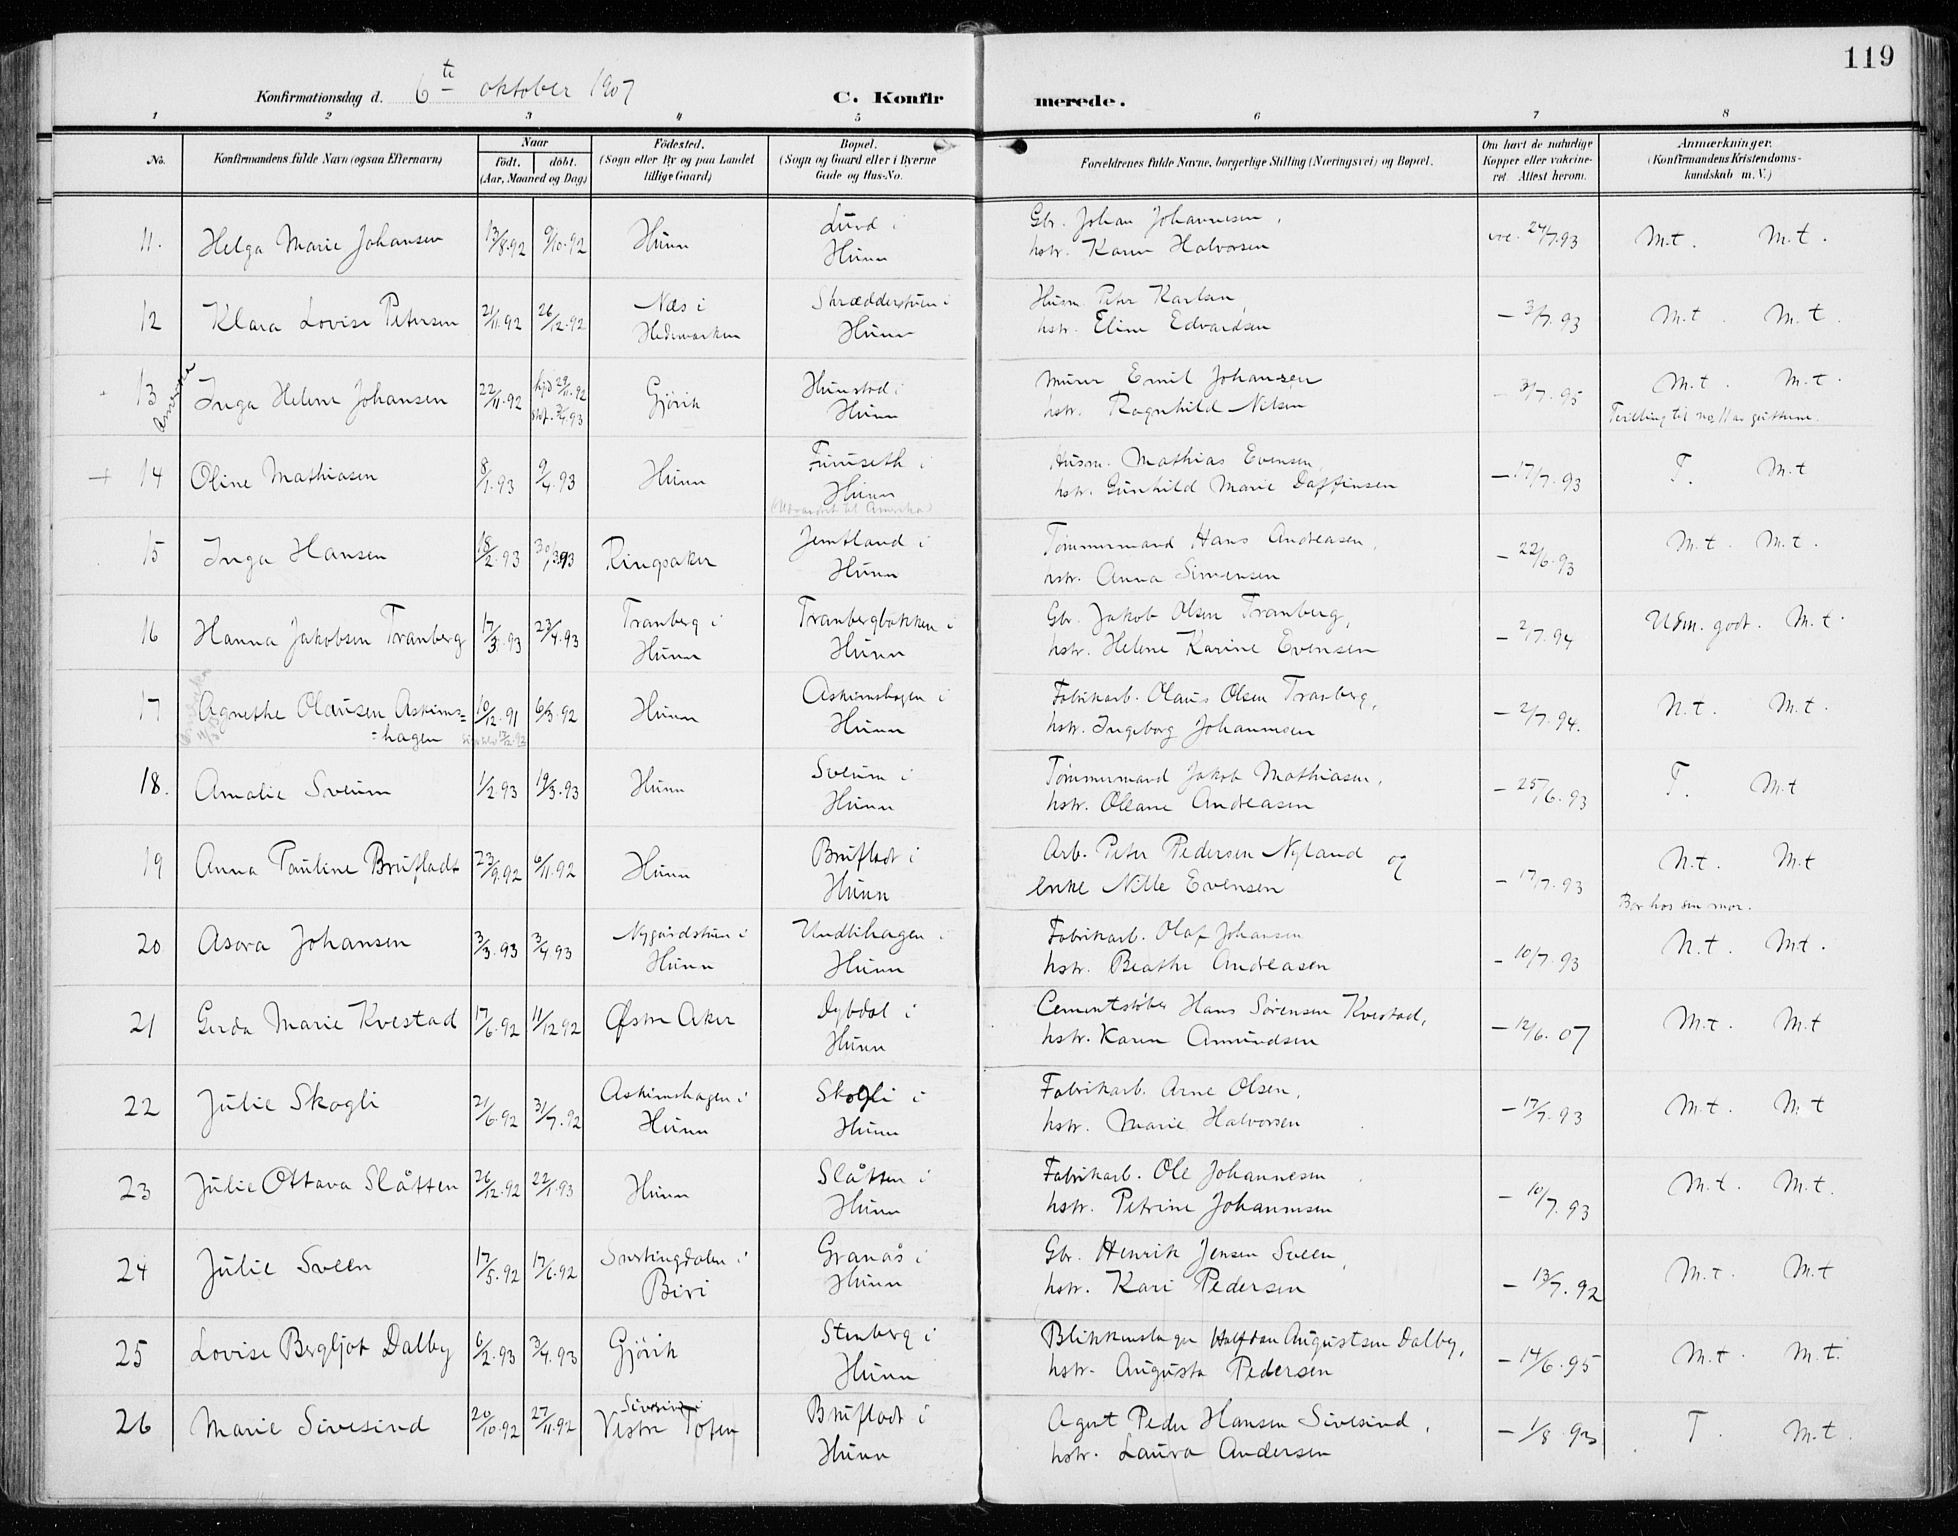 119
Konfirmationsdag d. 6te oktober 1907 C. Konfirmerede.
1 2 3 4 5 6 7 8
No. Konfirmandens fulde Navn (ogsaa Efternavn) Naar født. døbt. (Aar, Maaned og Dag) Fødested. (Sogn eller By og paa Landet tillige Gaard) Bopæl. (Sogn og Gaard eller i Byerne Gade og Hus-No. Forældrenes fulde Navne, borgerlige Stilling (Næringsvei) og Bopæl. Om havt de naturlige Kopper eller vakcineret. Attest herom. Anmærkninger. (Konfirmandens Kristendomskundskab m. V.)
11. Helga Marie Johansen 13/8.92 9/10.92 Hunn Lund i Hunn Gbr. Johan Johannesen, hstr. Karen Halvorsen vac. 24/7.93 M.t. M.t.
12 Klara Lovise Petersen 21/11.92 26/12.92 Næs i Hedemarken Skrædderstuen i Hunn Husm. Peter Karlsen, hstr. Eline Edvardsen - 3/7.93 M.t. M.t.
13 Inga Helene Johansen 22/11.92 hjd 29/11.92 Gjøvik Hunstad i Hunn Murer Emil Johansen hstr. Ragnhild Nilsen - 3/7.95 M.t. M.t.
14 Oline Mathiasen 8/1.93 9/4.93 Hunn Furuseth i Hunn Husm. Mathias Evensen, hstr. Gunhild Marie Daffinsen - 17/7.93 T. M.t
(Udvandret til Amerika)
15 Inga Hansen 18/2.93 Ringsaker Jemtland i Hunn Tømmermand Hans Andreasen, hstr. Anna Simensen - 22/6.93 M.t. M.t.
16 Hanna Jakobsen Tranberg 17/3.93 23/4.93 Tranberg i Hunn Tranbergbakken i Hunn Gbr. Jakob Olsen Tranberg, hstr. Helene Karine Evensen - 2/7.94 Udm. godt. M.t.
17 Agnethe Olausen Askims= =hagen 10/12.91 6/3.92 Hunn Askimshagen i Hunn Fabrikarb. Olaus Olsen Tranberg, hstr. Ingeborg Johannesen - 2/7.94. N.t. M.t.
18. Amalie Sveum 1/2.93 19/3.93 Hunn Sveum i Hunn Tømmermand Jakob Mathiasen, hstr. Oleane Andreasen - 25/6.93 T. M.t
19 Anna Pauline Brufladt 23/9.92 6/11.92 Hunn Brufladt i Hunn Arb. Peter Pedersen Nyland og enke Nille Evensen - 17/7.93 N.t. M.t
Bor hos sin mor.
20 Asora Johansen 3/3.93 3/4.93 Nygårdstuen i Hunn Undlihagen i Hunn Fabrikarb. Olaf Johansen hstr. Beathe Andreasen - 10/7.93 N.t. M.t.
21 Gerda Marie Kvestad 17/6.92 11/12.92 Østre Aker Dybdal i Hunn Cementstøber Hans Sørensen Kvestad, hstr. Karen Amundsen - 12/6.07 M.t. M.t
22 Julie Skogli 21/6.92 31/7.92 Askimshagen i Hunn Skogli i Hunn Fabrikarb. Arne Olsen, hstr. Marie Halvorsen - 17/7.93 M.t. M.t
23 Julie Ottava Slåtten 26/12.92 22/1.93 Hunn Slåtten i Hunn Fabrikarb. Ole Johannesen hstr. Petrine Johannesen - 10/7.93 M.t. M.t.
24 Julie Sveen 17/5.92 17/6.92 Snertingdalen i Biri Granås i Hunn Gbr. Henrik Jensen Sveen, hstr. Kari Pedersen - 13/7.92 M.t. M.t
25 Lovise Bergljot Dalby 6/2.93 3/4.93 Gjøvik Stenberg i Hunn Blikkenslager Halfdan Augustsen Dalby, hstr. Augusta Pedersen - 14/6.95 M.t. M.t.
26 Marie Sivesind 20/10.92 27/11.92 Sivesind i Vestre Toten Brufladt i Hunn Agent Peder Hansen Sivesind, hstr. Laura Andersen - 1/8.93 T. M.t.